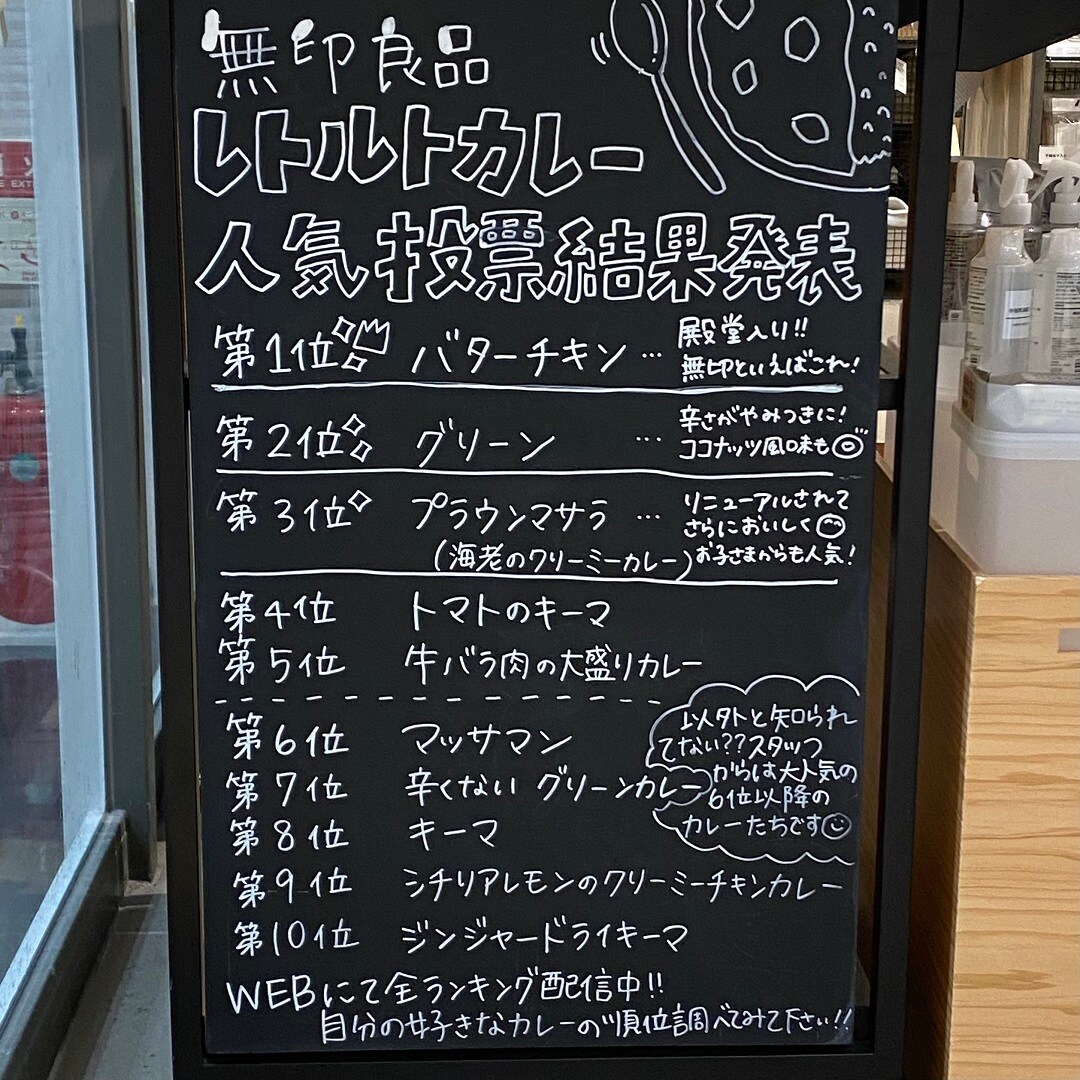 無印良品
レトルトカレー
人気投票結果発表
第1位 バターチキン … 殿堂入り!!
無印といえばこれ!
第2位 グリーン … 辛さがやみつきに!
ココナッツ風味も
第3位 プラウンマサラ … リニューアルされて
さらにおいしく
(海老のクリーミーカレー) お子さまからも人気!
第4位 トマトのキーマ
第5位 牛バラ肉の大盛りカレー
第6位 マッサマン
第7位 辛くない グリーンカレー
第8位 キーマ
第9位 シチリアレモンのクリーミーチキンカレー
第10位 ジンジャードライキーマ
以外と知られ
てない??スタッフ
からは大人気の
6位以降の
カレーたちです
WEBにて全ランキング配信中!!
自分の好きなカレーの順位調べてみて下さい!!